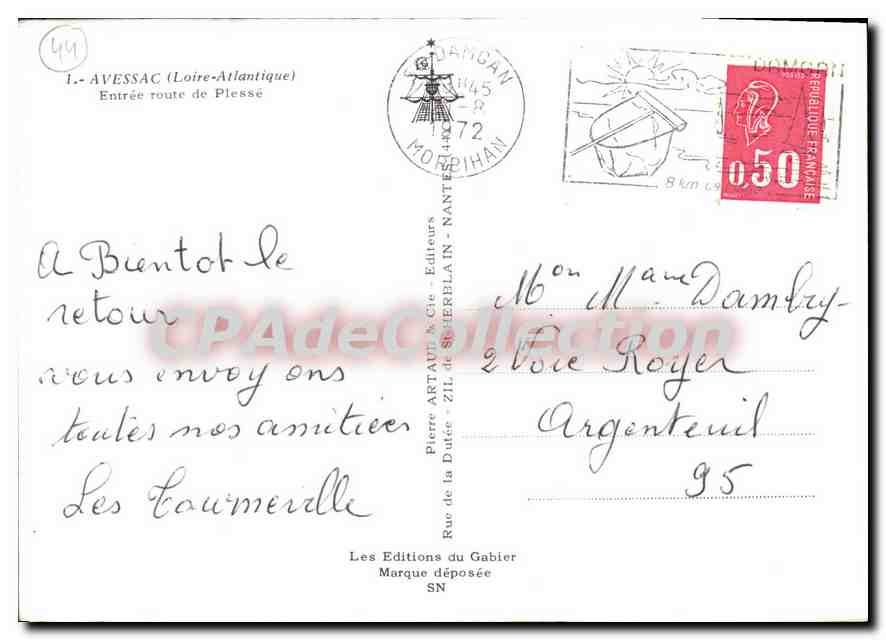 44
1.- AVESSAC (Loire-Atlantique)
Entrée route de Plessé
DAMGAN
1845
-8
1972
MORBIHAN
DAMGAN
8 km
POSTES
REPUBLIQUE FRANÇAISE
0,50
A Bientot le
retour
vous envoyons
toutes nos amitiées
Les Tourneville
Mon Mame Dambry-
2 Voie Royer
Argenteuil
95
Pierre ARTAUD & Cie - Editeurs
Rue de la Dutée - ZIL de St-HERBLAIN - NANTES (44)
CPAdeCollection
Les Editions du Gabier
Marque déposée
SN